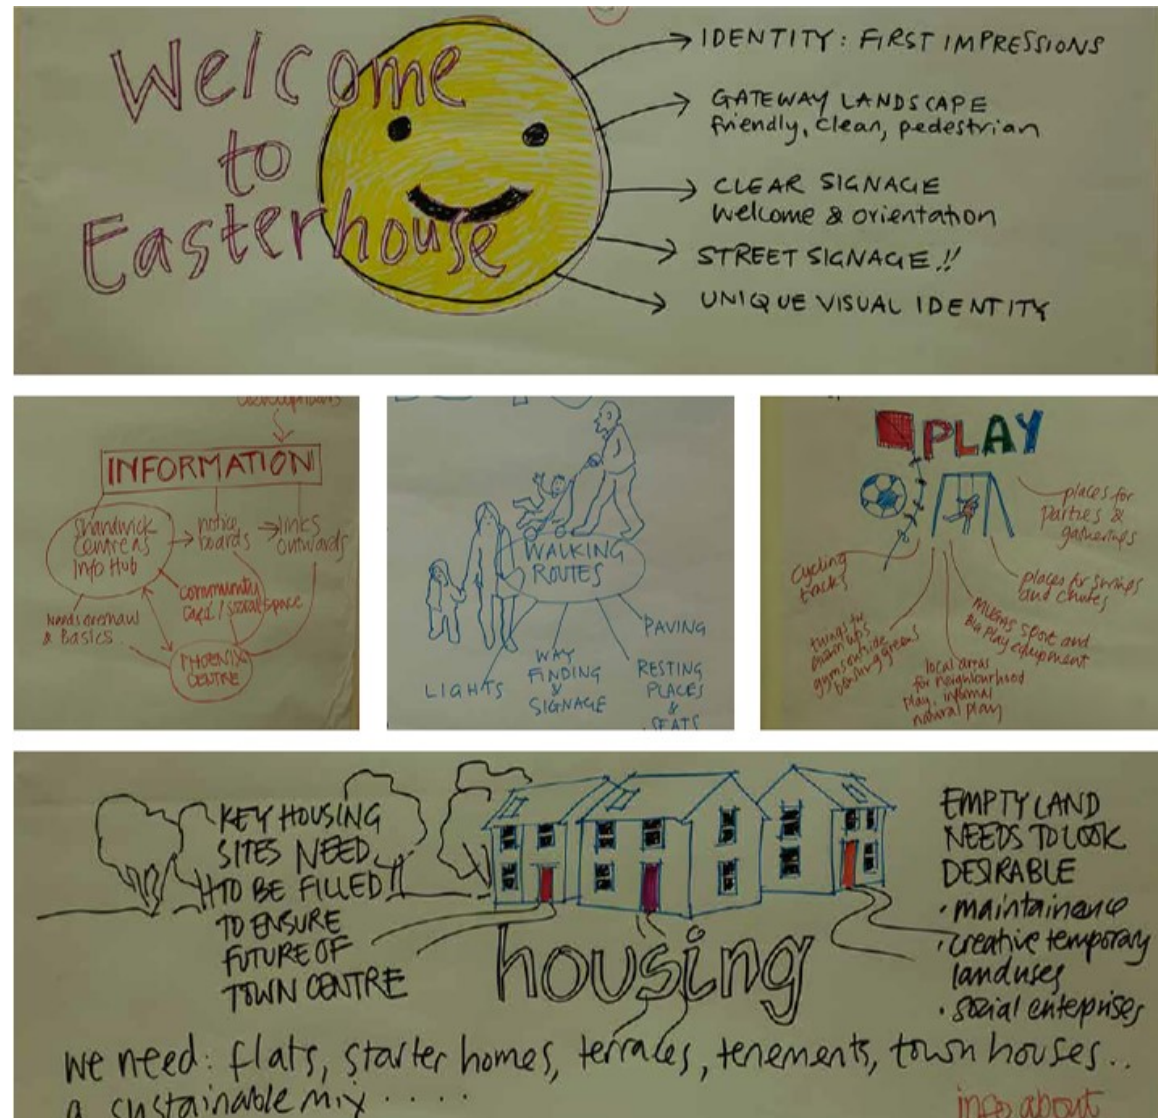 Welcome
to
Easterhouse
IDENTITY: FIRST IMPRESSIONS
GATEWAY LANDSCAPE
friendly, clean, pedestrian
CLEAR SIGNAGE
Welcome & orientation
STREET SIGNAGE!!
UNIQUE VISUAL IDENTITY
INFORMATION
Shandwick
Centre as
Info Hub
notice
boards
links
outwards
community
Needs overhaul
& Basics
PHOENIX
CENTRE
WALKING
ROUTES
LIGHTS
WAY
FINDING
&
SIGNAGE
RESTING
PLACES
&
SEATS
PAVING
PLAY
places for
parties &
gatherings
cycling
tracks
places for swings
and chutes
MUGAS sport and
Big play equipment
things for
grown ups
gyms outside
bowling greens
local areas
for neighbourhood
play, informal
natural play
KEY HOUSING
SITES NEED
TO BE FILLED!!
TO ENSURE
FUTURE OF
TOWN CENTRE
housing
EMPTY LAND
NEEDS TO LOOK
DESIRABLE
• maintainence
• creative temporary
landuses
• social enterprises
we need: flats, starter homes, terraces, tenements, town houses..
a sustainable mix .....
info about